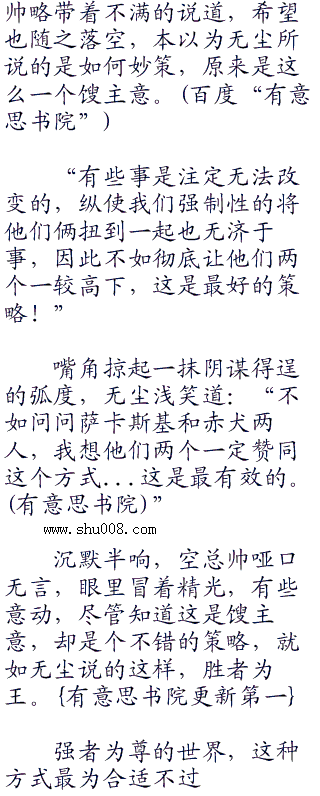 帅略带着不满的说道，希望
也随之落空，本以为无尘所
说的是如何妙策，原来是这
么一个馊主意。(百度“有意
思书院”)
“有些事是注定无法改
变的，纵使我们强制性的将
他们俩扭到一起也无济于
事，因此不如彻底让他们两
个一较高下，这是最好的策
略！”
嘴角掠起一抹阴谋得逞
的弧度，无尘浅笑道：“不
如问问萨卡斯基和赤犬两
人，我想他们两个一定赞同
这个方式...这是最有效的。
(有意思书院)”
www.shu008.com
沉默半响，空总帅哑口
无言，眼里冒着精光，有些
意动，尽管知道这是馊主
意，却是个不错的策略，就
如无尘说的这样，胜者为
王。{有意思书院更新第一}
强者为尊的世界，这种
方式最为合适不过